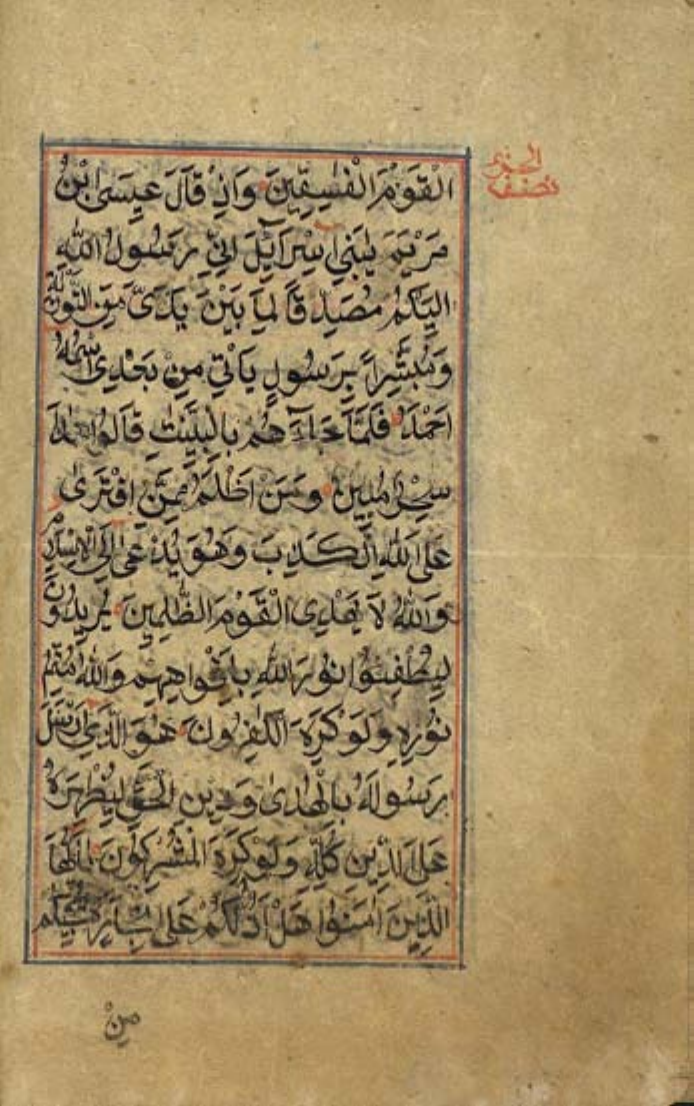 الْقَوْمَ الْفٰسِقِيْنَ وَاِذْ قَالَ عِيْسَى ابْنُ
مَرْيَمَ يٰبَنِيْ اِسْرَآئِيْلَ اِنِّيْ رَسُوْلُ اللّٰهِ
اِلَيْكُمْ مُصَدِّقًا لِمَا بَيْنَ يَدَيَّ مِنَ التَّوْرٰىةِ
وَمُبَشِّرًا بِرَسُوْلٍ يَأْتِيْ مِنْ بَعْدِى اسْمُهٗ
اَحْمَدُ فَلَمَّا جَآءَهُمْ بِالْبَيِّنٰتِ قَالُوْا هٰذَا
سِحْرٌ مُبِيْنٌ وَمَنْ اَظْلَمُ مِمَّنِ افْتَرٰى
عَلَى اللّٰهِ الْكَذِبَ وَهُوَ يُدْعٰى اِلَى الْاِسْلَامِ
وَاللّٰهُ لَا يَهْدِى الْقَوْمَ الظّٰلِمِيْنَ يُرِيْدُوْنَ
لِيُطْفِئُوْا نُوْرَ اللّٰهِ بِاَفْوَاهِهِمْ وَاللّٰهُ مُتِمُّ
نُوْرِهٖ وَلَوْ كَرِهَ الْكٰفِرُوْنَ هُوَ الَّذِيْ اَرْسَلَ
رَسُوْلَهٗ بِالْهُدٰى وَدِيْنِ الْحَقِّ لِيُظْهِرَهٗ
عَلَى الدِّيْنِ كُلِّهٖ وَلَوْ كَرِهَ الْمُشْرِكُوْنَ يٰٓاَيُّهَا
الَّذِيْنَ اٰمَنُوْا هَلْ اَدُلُّكُمْ عَلٰى تِجَارَةٍ تُنْجِيْكُمْ
مِنْ